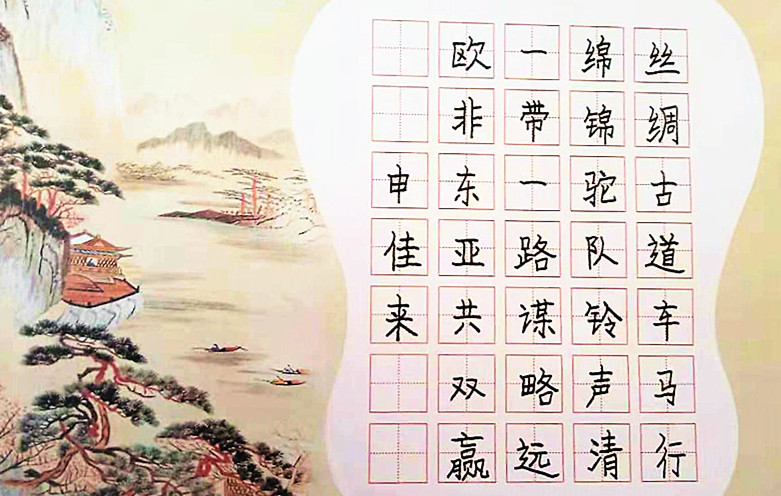 丝绸古道车马行
绵锦驼队铃声清
一带一路谋略远
欧非东亚共双赢
申佳来